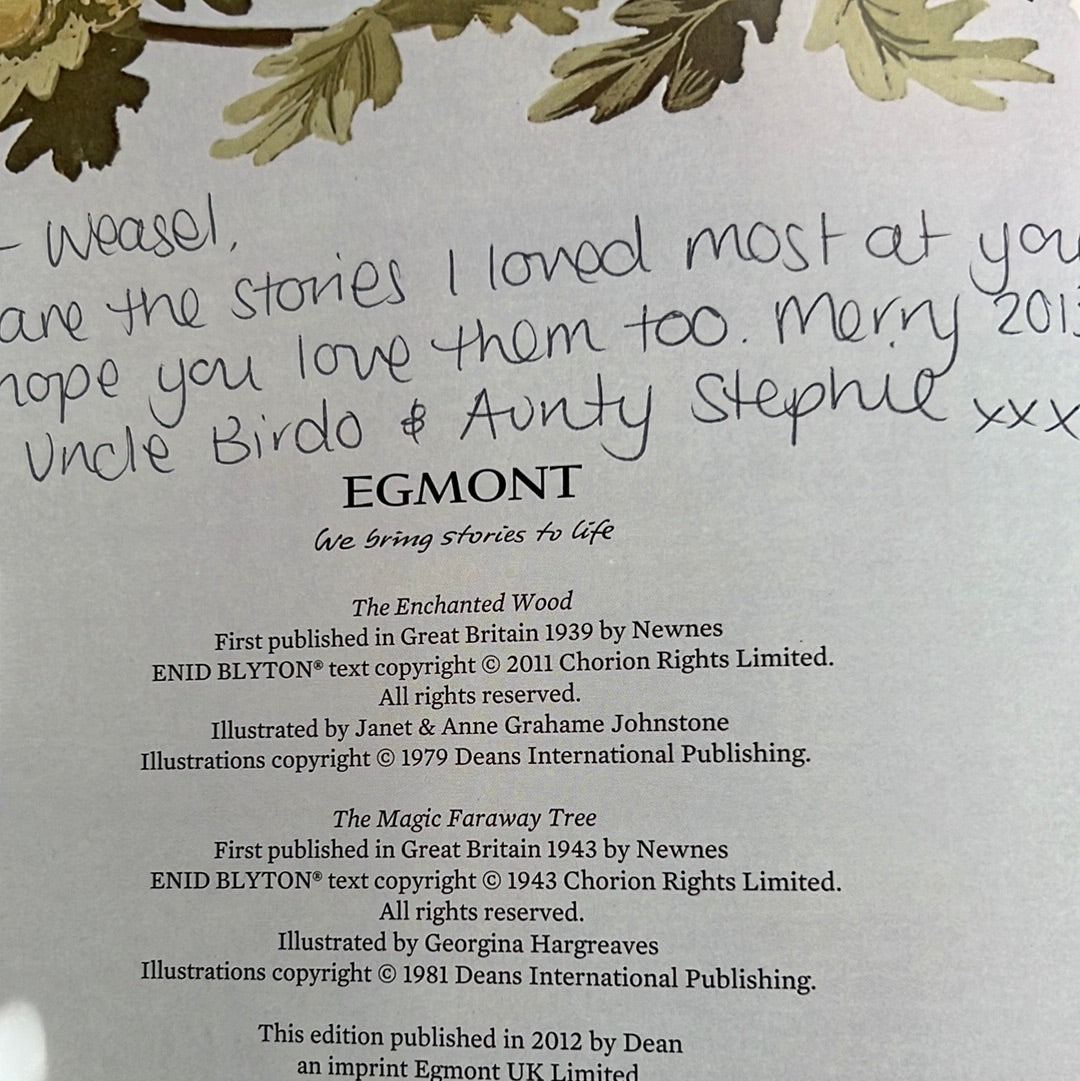 - Weasel,
are the stories I loved most at you
hope you love them too. Merry 2013
Uncle Birdo & Aunty Stephie xxx
EGMONT
We bring stories to life
The Enchanted Wood
First published in Great Britain 1939 by Newnes
ENID BLYTON® text copyright © 2011 Chorion Rights Limited.
All rights reserved.
Illustrated by Janet & Anne Grahame Johnstone
Illustrations copyright © 1979 Deans International Publishing.
The Magic Faraway Tree
First published in Great Britain 1943 by Newnes
ENID BLYTON® text copyright © 1943 Chorion Rights Limited.
All rights reserved.
Illustrated by Georgina Hargreaves
Illustrations copyright © 1981 Deans International Publishing.
This edition published in 2012 by Dean
an imprint Egmont UK Limited